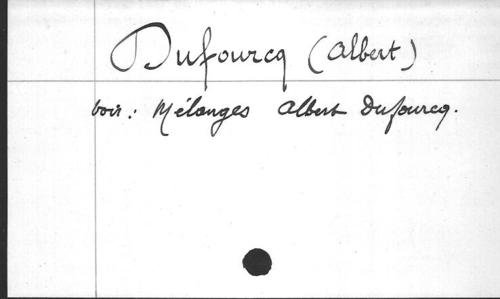 Dufourcq (Albert)
voir : Mélanges Albert Dufourcq.